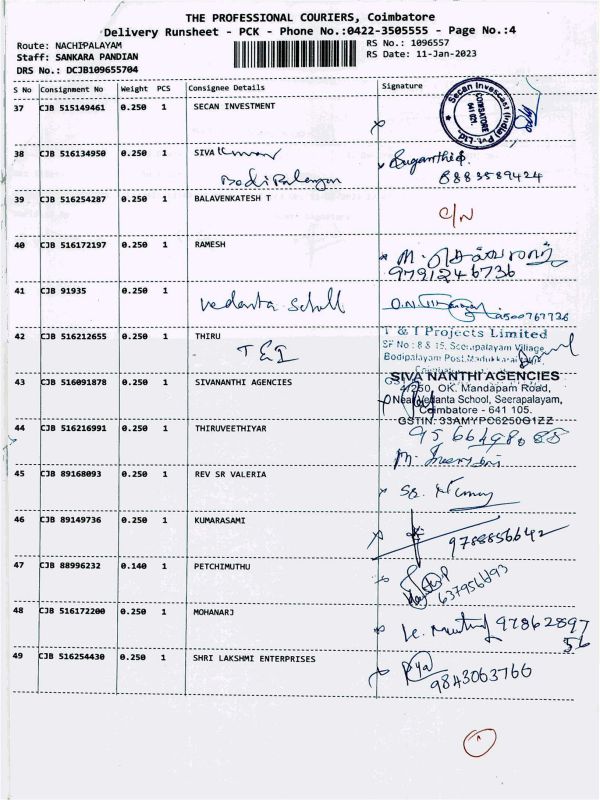 THE PROFESSIONAL COURIERS, Coimbatore
Delivery Runsheet - PCK - Phone No.:0422-3505555 - Page No.:4
Route: NACHIPALAYAM
RS No.: 1096557
Staff: SANKARA PANDIAN
RS Date: 11-Jan-2023
DRS No.: DCJB109655704
S No Consignment No Weight PCS Consignee Details Signature
37 CJB 515149461 0.250 1 SECAN INVESTMENT
Secan Invescast (India) Pvt. Ltd. COIMBATORE 641 021
38 CJB 516134950 0.250 1 SIVA Kumar
Bodipalayam
8883589424
39 CJB 516254287 0.250 1 BALAVENKATESH T
C/N
40 CJB 516172197 0.250 1 RAMESH
9791246736
41 CJB 91935 0.250 1
Vedanta School
42 CJB 516212655 0.250 1 THIRU
T & I
T & I Projects Limited
SF No : 8 & 15, Seerapalayam Village,
Bodipalayam Post, Madukkarai
43 CJB 516091878 0.250 1 SIVANANTHI AGENCIES
SIVA NANTHI AGENCIES
4/250, OK. Mandapam Road,
Near Vedanta School, Seerapalayam,
Coimbatore - 641 105.
GSTIN: 33AMYPC6250G1ZZ
44 CJB 516216991 0.250 1 THIRUVEETHIYAR
45 CJB 89168093 0.250 1 REV SR VALERIA
46 CJB 89149736 0.250 1 KUMARASAMI
9788856642
47 CJB 88996232 0.140 1 PETCHIMUTHU
48 CJB 516172200 0.250 1 MOHANARJ
9786289756
49 CJB 516254430 0.250 1 SHRI LAKSHMI ENTERPRISES
9843063766